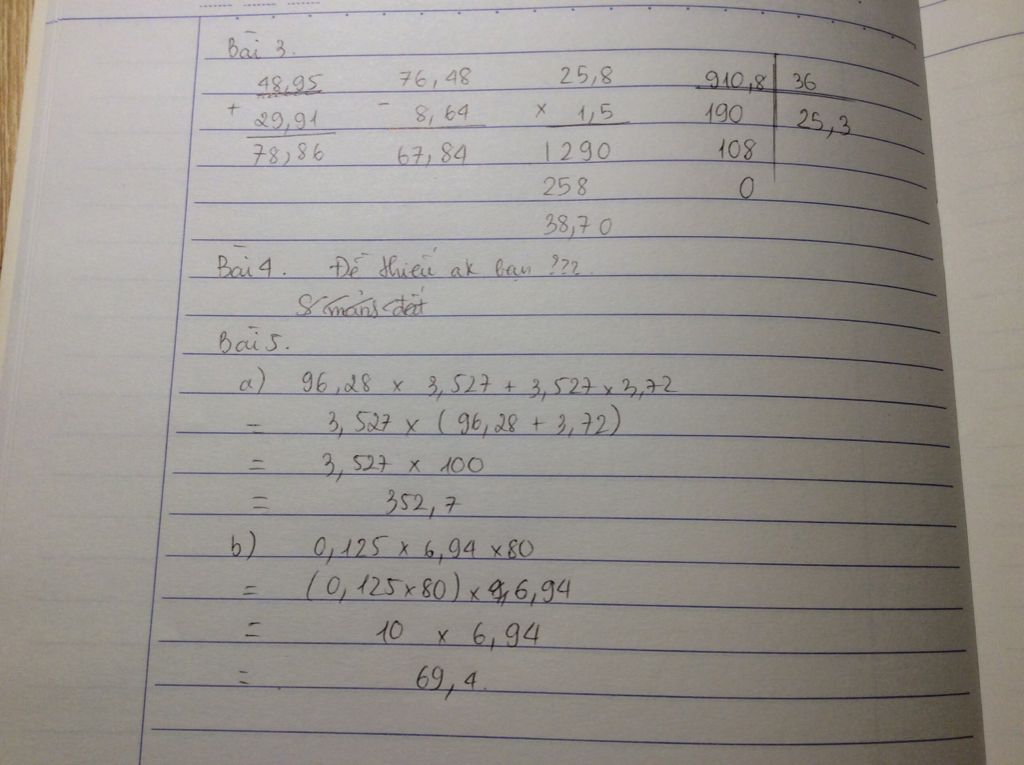 Bài 3.
48,95 76,48 25,8 910,8 36
+ 29,91 - 8,64 × 1,5 190 25,3
78,86 67,84 1290 108
258 0
38,70
Bài 4. Đề thiếu ak bạn ???
Bài 5.
a) 96,28 × 3,527 + 3,527 × 3,72
= 3,527 × (96,28 + 3,72)
= 3,527 × 100
= 352,7
b) 0,125 × 6,94 × 80
= (0,125×80) × 6,94
= 10 × 6,94
= 69,4.